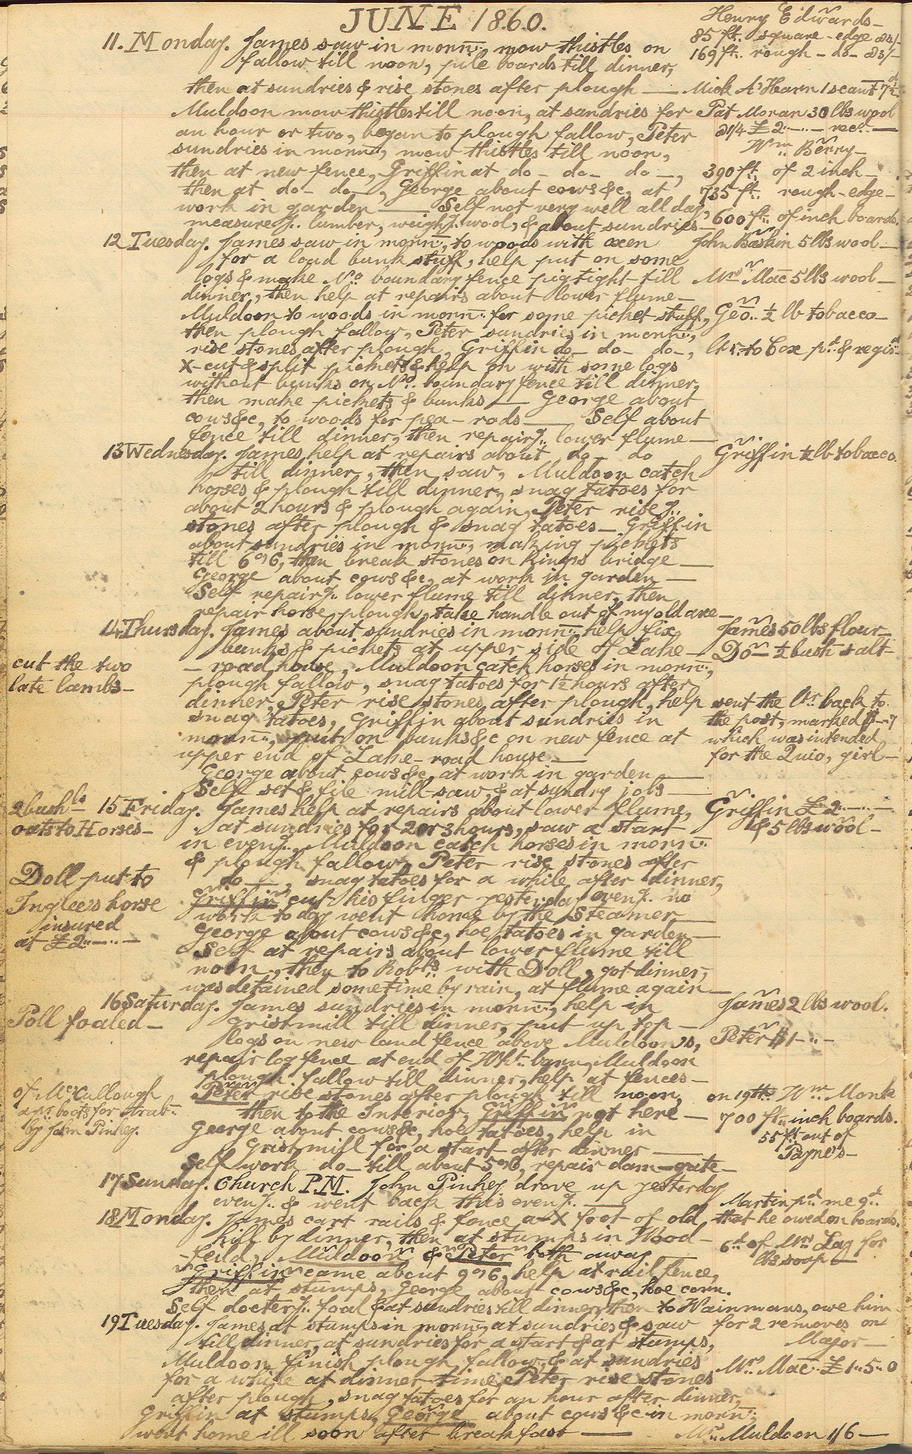 JUNE 1860.
Henry Edwards-
85 ft. square-edge 83/-
169 ft. rough - do- 83/-
11. Monday. James saw in mornn, mow thistles on
fallow till noon, pile boards till dinner,
then at sundries & rise stones after plough — Mick A'Hearn 1 scant 7½d
Muldoon mow thistles till noon, at sundries for
Pat Moran 30 lbs wool
an hour or two, began to plough fallow, Peter
sundries in mornn, mow thistles till noon,
Wm Berry-
then at new fence, Griffin at do- do- do -,
390 ft. of 2 inch -
then at do- do-, George about cows &c, at
735 ft. rough-edge-
work in garden — Self not very well all day,
measureg. lumber, weighg. wool, & about sundries-
600 ft. of inch boards.
12 Tuesday. James saw in mornn, to woods with oxen
John Baskin 5 lbs wool-
for a load bunk stuff, help put on some
logs & make No. boundary fence pigtight till
Mrs Mac 5 lbs wool-
dinner, then help at repairs about lower flume-
Muldoon to woods in mornn for some picket stuff,
Geo. ½ lb tobacco-
then plough fallow, Peter sundries in mornn,
rise stones after plough, Griffin do- do- do-,
ltr. to Cox pd. & regisd
X-cut & split pickets & help on with some logs
without bunks on No. boundary fence till dinner,
then make pickets & bunks — George about
cows &c, to woods for pea-rods — Self about
fence till dinner, then repairg. lower flume —
13 Wednesday. James help at repairs about do- do
Griffin ½ lb tobacco.
till dinner, then saw, Muldoon catch
horses & plough till dinner, snag tatoes for
about 2 hours & plough again, Peter riseg.
stones after plough & snag tatoes - Griffin
about sundries in mornn, making pickets
till 6 o'6, then break stones on Kings bridge —
George about cows &c, at work in garden —
Self repairg. lower flume till dinner, then
repair horse plough, take handle out of my old axe-
14 Thursday. James about sundries in mornn, help fix
James 50 lbs flour
bunks & pickets at upper side of Lake-
Do- ½ bush salt-
cut the two
late lambs-
- road house, Muldoon catch horses in mornn,
plough fallow, snag tatoes for 1½ hours after
dinner, Peter rise stones after plough, help
sent the ltr back to
snag tatoes, Griffin about sundries in
the post, marked $-7
mornn, put on bunks &c on new fence at
which was intended
upper end of Lake-road house —
for the Quio, girl-
George about cows &c, at work in garden —
Self set & file mill-saw & at sundry jobs —
2 bushls
oats to Horses-
15 Friday. James help at repairs about lower flume,
Griffin £2
at sundries for 2 or 3 hours, saw a start
& 5 lbs wool-
in eveng. Muldoon catch horses in mornn
& plough fallow, Peter rise stones after
do —, snag tatoes for a while after dinner,
Doll put to
Inglee's horse
insured
at £2
Griffin cut his finger yesterday eveng. no
work to day went home by the Steamer —
George about cows &c, hoe tatoes in garden —
Self at repairs about lower flume till
noon, then to Robts with Doll, got dinner,
was detained sometime by rain, at flume again-
16 Saturday. James sundries in mornn, help in
James 2 lbs wool.
Poll foaled-
Gristmill till dinner, put up top -
logs on new land fence above Muldoon's,
Peter $1-
repair log fence at end of Wht. barn, Muldoon
plough fallow till dinner, help at fences-
of McCullough
a pr. boots for Arab.
by John Pinkey.
Peter rise stones after plough till noon,
on 19th Wm Monk
then to the Interior, Griffin not here —
700 ft. inch boards.
George about cows &c, hoe tatoes, help in
55 ft. out of
Gristmill for a start after dinner —
Payne's-
Self work do- till about 5 o'6, repair dam-gate-
17 Sunday. Church P.M. John Pinkey drove up yesterday
eveng. & went back this eveng. —
Martin pd. me 9d
18 Monday. James cart rails & fence a-X foot of old
that he owed on boards.
kiln by dinner, then at stumps in Wood-
6d of Mrs Lag for
-feild, Muldoon & Peter both away —
lbs soap
Griffin came about 9 o'6, help at rail fence,
then at stumps, George about cows &c, hoe corn.
Self docterg. foal & at sundries till dinner, then to Wainmans, owe him
19 Tuesday. James at stumps in mornn, at sundries & saw
for 2 removes on
till dinner, at sundries for a start & at stumps,
Major-
Muldoon finish plough fallow, & at sundries
Mrs Mac £1-5-0
for a while at dinner time, Peter rise stones
after plough, snag tatoes for an hour after dinner,
Griffin at stumps, George about cows &c in mornn
went home ill soon after breakfast —
Mrs Muldoon 1/6 —